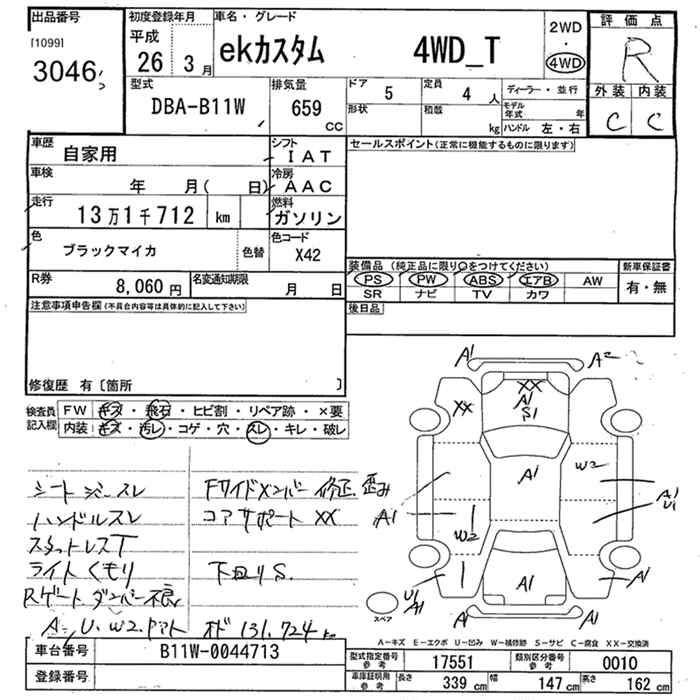 出品番号
[1099]
3046
初度登録年月
平成
26 3月
車名・グレード
ekカスタム 4WD_T
2WD
・
4WD
評価点
R
外装 内装
C C
型式
DBA-B11W
排気量
659 cc
ドア 5
定員 4 人
形状
積載 kg
ディーラー・並行
モデル年式 年
ハンドル 左・右
車歴 自家用
シフト IAT
車検 年 月( 日)
冷房 AAC
走行 13万1千712 km
燃料 ガソリン
色 ブラックマイカ 色替
色コード X42
R券 8,060円
名変通知期限 月 日
セールスポイント(正常に機能するものに限ります)
装備品(純正品に限り○をつけてください)
新車保証書
PS PW ABS エアB AW
SR ナビ TV カワ
有・無
後日品
注意事項申告欄(不具合内容等は具体的に記入して下さい)
修復歴 有〔箇所 〕
検査員記入欄
FW キズ・飛石・ヒビ割・リペア跡・×要
内装 キズ・汚レ・コゲ・穴・スレ・キレ・破レ
シートジャースレ
ハンドルスレ
スタットレスT
ライトくもり
Rゲートダンパー不良
A・U、W2、アト オド131,724km
Fサイドメンバー修正、歪み
コアサポートXX
下回りS
A1 A2
XX
XX
A1
S1
A1
W2
A1
U1
A1
W2
A1
U1
A1
A1
A1
スペア
A1
A－キズ E－エクボ U－凹み W－補修跡 S－サビ C－腐食 XX－交換済
車台番号 B11W-0044713
登録番号
型式指定番号 参考 17551
類別区分番号 参考 0010
車庫証明用 参考 長さ 339 cm 幅 147 cm 高さ 162 cm